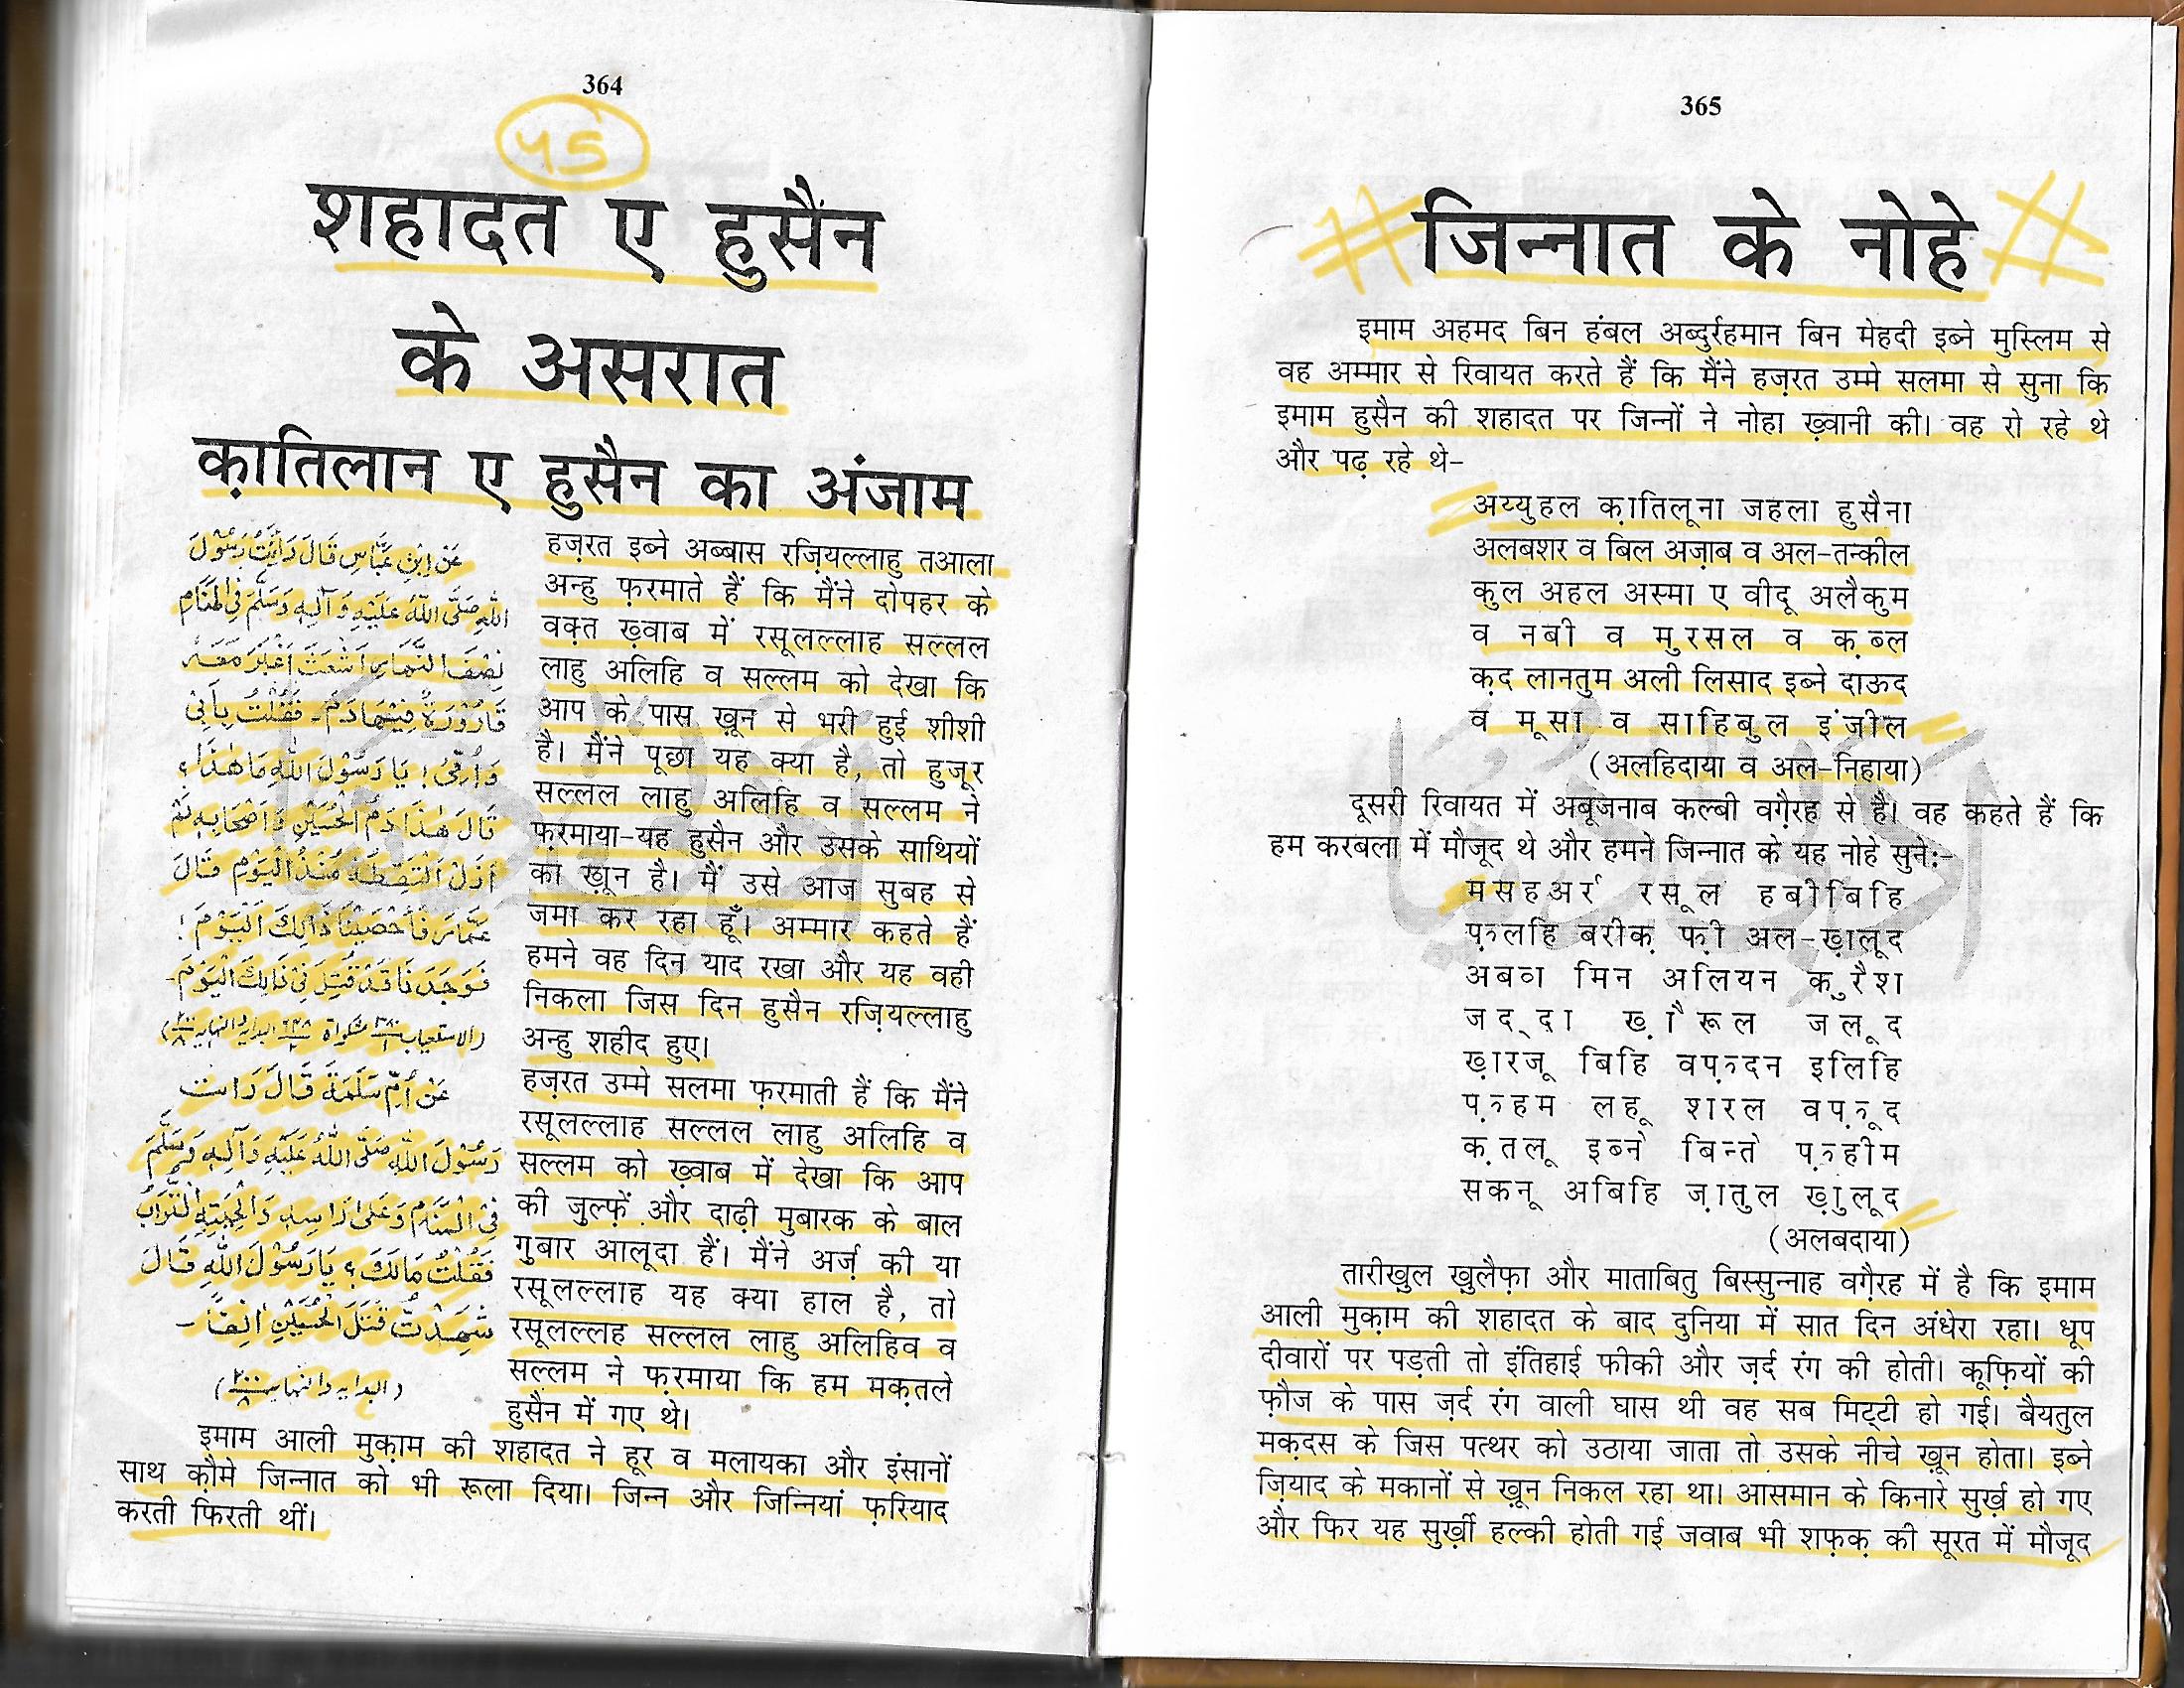 364
45
शहादत ए हुसैन
के असरात
क़ातिलान ए हुसैन का अंजाम
عَنْ اِبْنِ عَبَّاسٍ قَالَ رَاَيْتُ رَسُوْلَ
اللهِ صَلَّى اللهُ عَلَيْهِ وَآلِهٖ وَسَلَّمَ فِي الْمَنَامِ
نِصْفَ النَّهَارِ اَشْعَثَ اَغْبَرَ مَعَهٗ
قَارُوْرَةٌ فِيْهَا دَمٌ۔ فَقُلْتُ بِاَبِيْ
وَاُمِّيْ! يَا رَسُوْلَ اللهِ مَا هٰذَا؟
قَالَ هٰذَا دَمُ الْحُسَيْنِ وَاَصْحَابِهٖ لَمْ
اَزَلْ اَلْتَقِطُهٗ مُنْذُ الْيَوْمِ قَالَ
عَمَّارٌ فَاَحْصَيْنَا ذَالِكَ الْيَوْمَ!
فَوَجَدْنَا قَدْ قُتِلَ فِيْ ذَالِكَ الْيَوْمِ۔
عَنْ اُمِّ سَلَمَةَ قَالَ رَاَيْتُ
رَسُوْلَ اللهِ صَلَّى اللهُ عَلَيْهِ وَآلِهٖ وَسَلَّمَ
فِي الْمَنَامِ وَعَلىٰ رَاسِهٖ وَالْحِيَتِهِ التُّرَابُ
فَقُلْتُ مَالَكَ؟ يَا رَسُوْلَ اللهِ قَالَ
شَهِدْتُ قَتْلَ الْحُسَيْنِ اٰنِفًا۔
हज़रत इब्ने अब्बास रज़ियल्लाहु तआला
अन्हु फ़रमाते हैं कि मैंने दोपहर के
वक़्त ख़्वाब में रसूलल्लाह सल्लल
लाहु अलिहि व सल्लम को देखा कि
आप के पास ख़ून से भरी हुई शीशी
है। मैंने पूछा यह क्या है, तो हुज़ूर
सल्लल लाहु अलिहि व सल्लम ने
फ़रमाया-यह हुसैन और उसके साथियों
का ख़ून है। मैं उसे आज सुबह से
जमा कर रहा हूँ। अम्मार कहते हैं
हमने वह दिन याद रखा और यह वही
निकला जिस दिन हुसैन रज़ियल्लाहु
अन्हु शहीद हुए।
हज़रत उम्मे सलमा फ़रमाती हैं कि मैंने
रसूलल्लाह सल्लल लाहु अलिहि व
सल्लम को ख़्वाब में देखा कि आप
की ज़ुल्फ़ें और दाढ़ी मुबारक के बाल
गुबार आलूदा हैं। मैंने अर्ज़ की या
रसूलल्लाह यह क्या हाल है, तो
रसूलल्लह सल्लल लाहु अलिहिव व
सल्लम ने फ़रमाया कि हम मक़तले
हुसैन में गए थे।
इमाम आली मुक़ाम की शहादत ने हूर व मलायका और इंसानों
साथ क़ौमे जिन्नात को भी रूला दिया। जिन्न और जिन्नियां फ़रियाद
करती फिरती थीं।
365
जिन्नात के नोहे
इमाम अहमद बिन हंबल अब्दुर्रहमान बिन मेहदी इब्ने मुस्लिम से
वह अम्मार से रिवायत करते हैं कि मैंने हज़रत उम्मे सलमा से सुना कि
इमाम हुसैन की शहादत पर जिन्नों ने नोहा ख़्वानी की। वह रो रहे थे
और पढ़ रहे थे-
अय्युहल क़ातिलूना जहला हुसैना
अलबशर व बिल अज़ाब व अल-तन्कील
कुल अहल अस्मा ए वीदू अलैकुम
व नबी व मुरसल व क़ब्ल
क़द लानतुम अली लिसाद इब्ने दाऊद
व मूसा व साहिबुल इंजील
(अलहिदाया व अल-निहाया)
दूसरी रिवायत में अबूजनाब कल्बी वग़ैरह से है। वह कहते हैं कि
हम करबला में मौजूद थे और हमने जिन्नात के यह नोहे सुने:-
मसहअर्र रसूल हबीबिहि
फ़लहि बरीक़ फ़ी अल-ख़ालूद
मिन अलियन क़ुरैश
जद्दा ख़ैरूल जलूद
ख़ारजू बिहि वफ़्दन इलिहि
फ़हम लहू शारल वफ़ूद
क़तलू इब्ने बिन्ते फ़हीम
सकनू अबिहि ज़ातुल ख़ुलूद
(अलबदाया)
तारीख़ुल ख़ुलैफ़ा और माताबितु बिस्सुन्नाह वग़ैरह में है कि इमाम
आली मुक़ाम की शहादत के बाद दुनिया में सात दिन अंधेरा रहा। धूप
दीवारों पर पड़ती तो इंतिहाई फीकी और ज़र्द रंग की होती। कूफ़ियों की
फ़ौज के पास ज़र्द रंग वाली घास थी वह सब मिट्टी हो गई। बैयतुल
मक़दस के जिस पत्थर को उठाया जाता तो उसके नीचे ख़ून होता। इब्ने
ज़ियाद के मकानों से ख़ून निकल रहा था। आसमान के किनारे सुर्ख़ हो गए
और फिर यह सुर्ख़ी हल्की होती गई जवाब भी शफ़क़ की सूरत में मौजूद